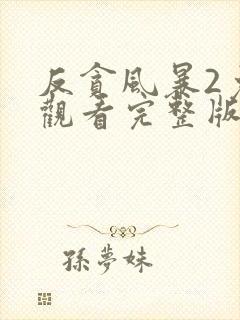 反貪風暴2
觀看完整版
孫夢妹